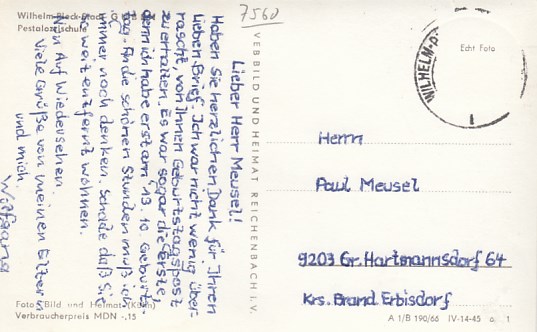 Wilhelm-Pieck-Stadt Guben
Pestalozzischule
7560
Lieber Herr Meusel!
Haben Sie herzlichen Dank für Ihren
lieben Brief. Ich war nicht wenig über-
rascht, von Ihnen Geburtstagspost
zu erhalten. Es war sogar die erste,
denn ich habe erst am 13.10. Geburts-
tag. An die schönen Stunden muß ich
immer noch denken. Schade daß Sie
so weit entfernt wohnen.
Nun Auf Wiedersehen.
Viele Grüße von meinen Eltern
und mich.
Wolfgang
VEB BILD UND HEIMAT REICHENBACH I. V.
WILHELM-P
Echt Foto
Herrn
Paul Meusel
9203 Gr. Hartmannsdorf 64
Krs. Brand Erbisdorf
Foto: Bild und Heimat
Verbraucherpreis MDN -,15
A 1/B 190/66 IV-14-45 1